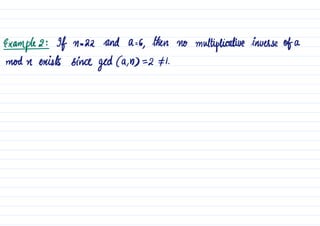 Example 2: If n=22 and a=6, then no multiplicative inverse of a
mod n exists since gcd (a,n) =2 ≠1.